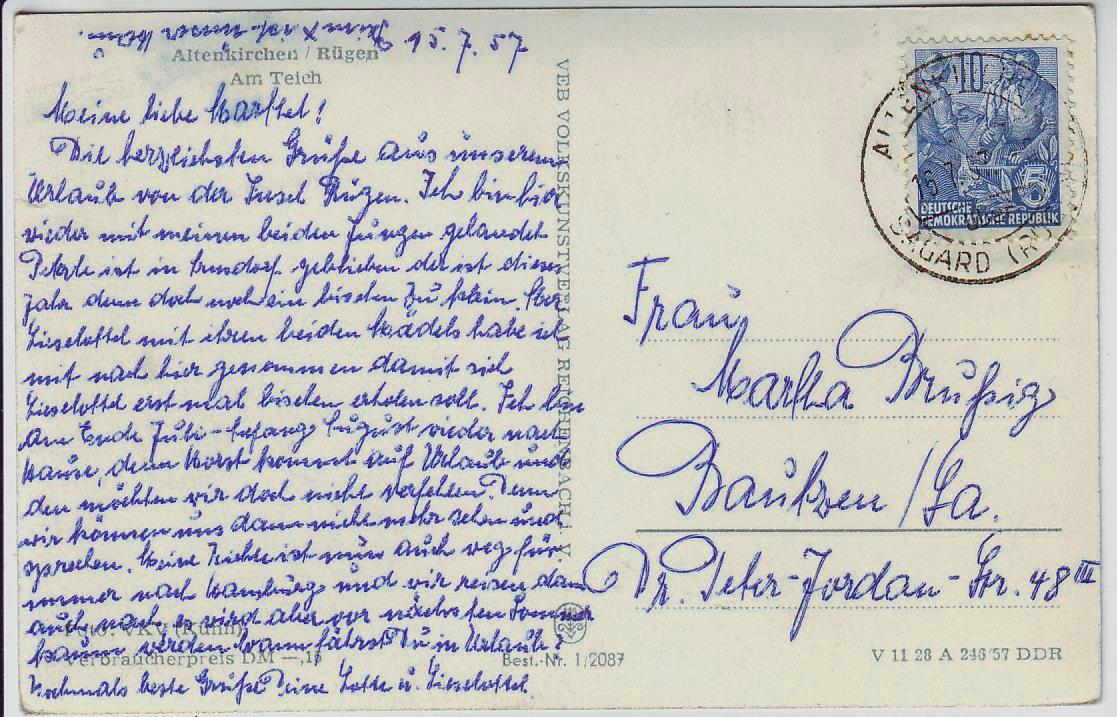 15. 7. 57
Altenkirchen / Rügen
Am Teich
Meine liebe Marthel!
Die herzlichsten Grüße aus unserem
Urlaub von der Insel Rügen. Ich bin hier
wieder mit meinen beiden Jungen gelandet
ist in geblieben der ist dieses
Jahr denn doch noch ein bischen zu klein. Aber
Lieselottel mit ihren beiden Mädels habe ich
mit nach hier genommen damit sich
Lieselottel erst mal bischen erholen soll. Ich bin
am Ende Juli - Anfang August wieder nach
Hause, denn Horst kommt auf Urlaub und
den möchten wir doch nicht verfehlen. Denn
wir können uns dann nicht mehr sehen und
sprechen. Meine Nichte ist nun auch weg für
immer nach Hamburg und wir reisen dann
auch nach es wird aber vor nächsten Sommer
kaum werden. Wann fährst Du in Urlaub?
Nochmals beste Grüße Deine Lotte u. Lieselottel
Foto: VKV (Kühn)
Verbraucherpreis DM —,15
VEB VOLKSKUNSTVERLAG REICHENBACH I. V.
Best.-Nr. 1/2087
V 11 28 A 246/57 DDR
10
5
DEUTSCHE
DEMOKRATISCHE REPUBLIK
SAGARD (RÜ
Frau
Martha Brußig
Bautzen / Sa.
Dr. Peter-Jordan-Str. 48 III